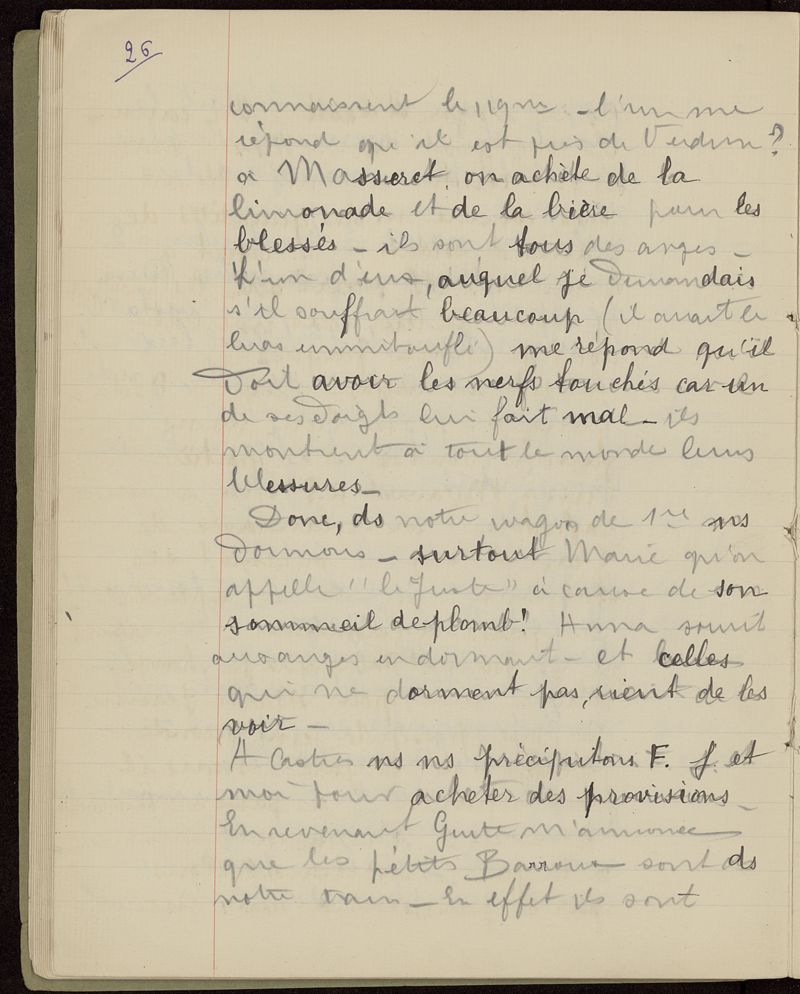 26
connaissent le 119me - l'un me
répond qu'il est près de Verdun?
à Masseret, on achète de la
limonade et de la bière pour les
blessés - ils sont tous des anges -
L'un d'eux, auquel je demandais
s'il souffrait beaucoup (il avait le
bras emmitouflé) me répond qu'il
doit avoir les nerfs touchés car un
de ses doigts lui fait mal - ils
montrent à tout le monde leurs
blessures -
Donc, ds notre wagon de 1re ns
dormons - surtout Marie qu'on
appelle "le Juste" à cause de son
sommeil de plomb! Anna sourit
aux anges en dormant - et celles
qui ne dorment pas, rient de les
voir -
A Castres ns ns précipitons F. J. et
moi pour acheter des provisions -
En revenant Guite m'annonce
que les petits Barroux sont ds
notre train - En effet ils sont